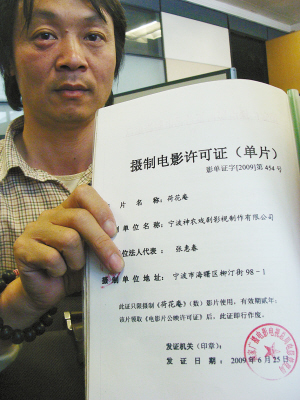 摄制电影许可证（单片）
影单证字[2009]第 454 号
片 名称:荷花庵
制单位名称:宁波神农戏剧影视制作有限公司
位法人代表: 张惠春
摄制单位地址: 宁波市海曙区柳汀街98-1
此证只限摄制《荷花庵》(数)影片使用,有效期贰年。
该片领取《电影片公映许可证》后,此证即行作废。
发证机关（印章）:
发 证 日 期: 2009年6月25日